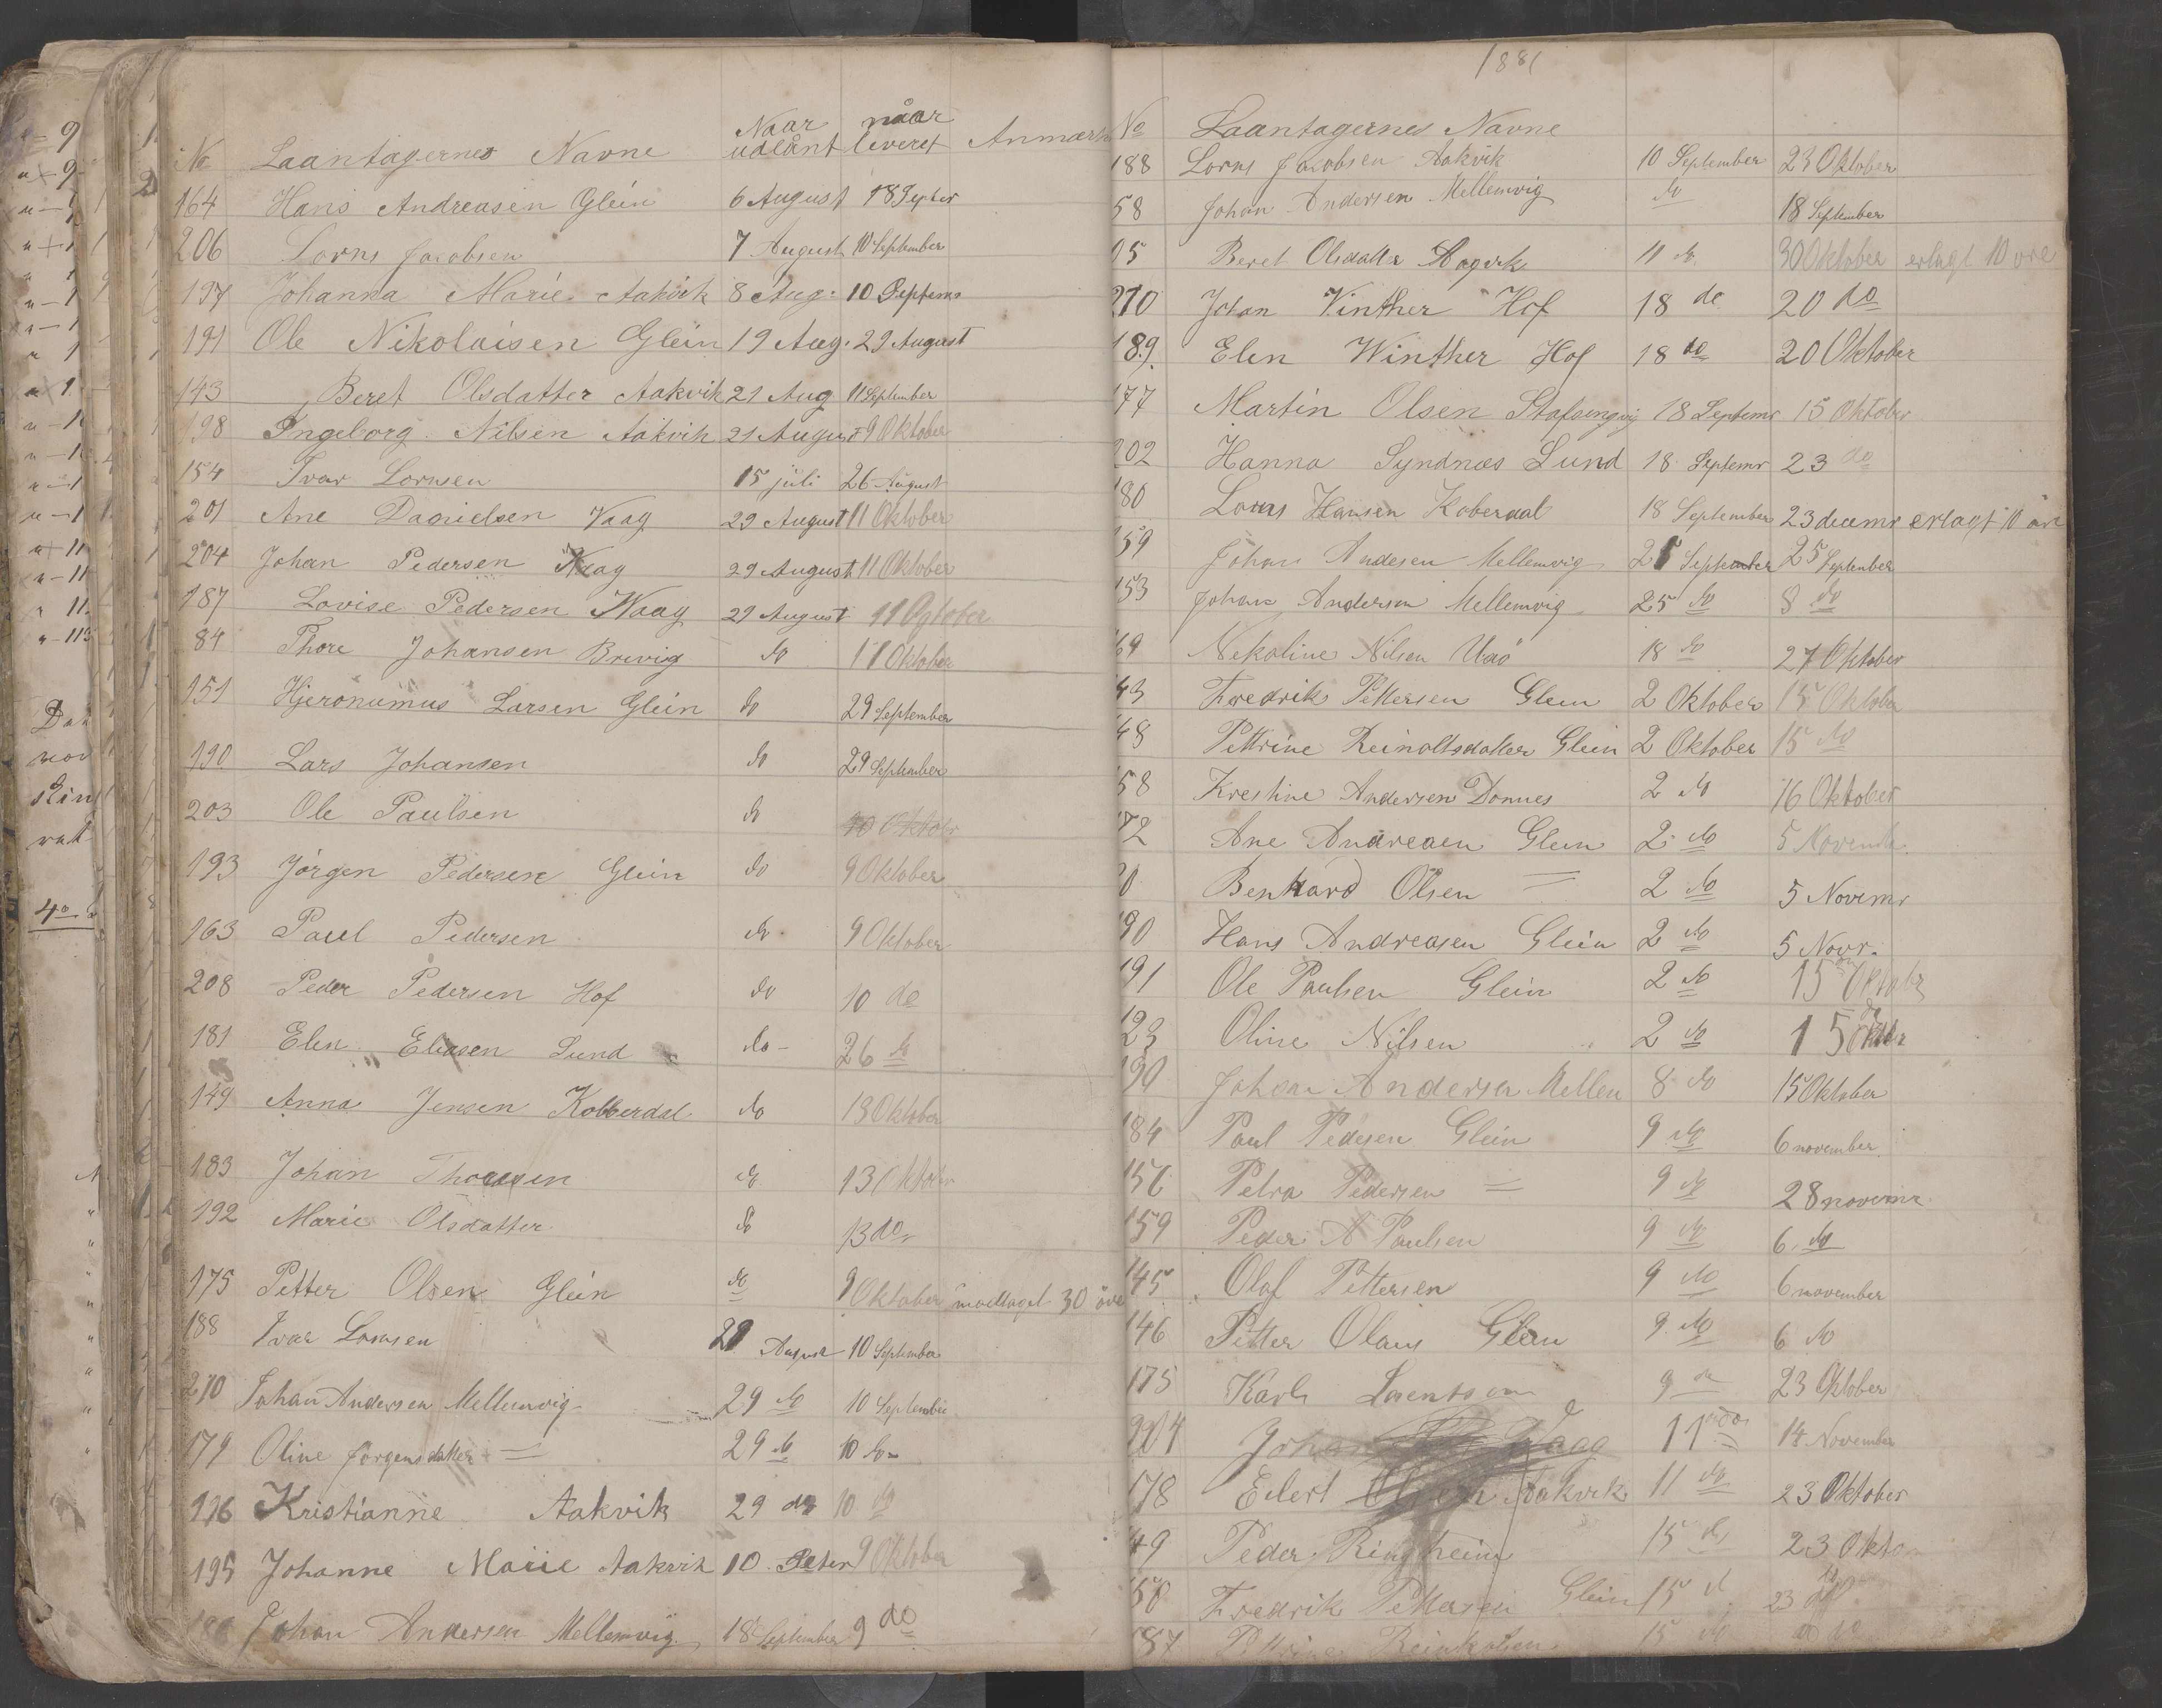 No Laantagernes Navne Naar udlånt når leveret Anmærk
164 Hans Andreasen Glein 6 August 18 Septer
206 Lorns Jacobsen 7 August 10 September
197 Johanna Marie Aakvik 8 Aug: 10 Septemr
191 Ole Nikolaisen Glein 19 Aug. 29 August
143 Beret Olsdatter Aakvik 21 Aug 11 September
198 Ingeborg Nilsen Aakvik 21 August 9 Oktober
154 Ivar Lornsen 15 juli 26 August
201 Ane Danielsen Vaag 29 August 11 Oktober
204 Johan Pedersen Vaag 29 August 11 Oktober
187 Lovise Pedersen Waag 29 August 11 Ogtober
84 Thore Johansen Brevig do 11 Oktober
151 Hjeronumus Larsen Glein do 29 September
190 Lars Johansen do 29 September
203 Ole Paulsen do 10 Oktobr
193 Jörgen Pedersen Glein do 9 Oktober
163 Paul Pedersen do 9 Oktober
208 Peder Pedersen Hof do 10 do
181 Elen Eliasen Lund do 26 do
149 Anna Jensen Kobberdal do 13 Oktober
183 Johan Thoresen do 13 Oktober
192 Marie Olsdatter do 13 do
175 Petter Olsen Glein do 9 Oktober modtaget 30 öre
188 Ivar Lornsen 29 August 10 September
210 Johan Andersen Mellemvig 29 do 10 September
179 Oline Jörgensdatter = 29 do 10 do
196 Kristianne Aakvik 29 do 10 do
195 Johanne Marie Aakvik 10. Setbr 9 Oktober
Johan Andersen Mellemvig 18 September 9 do
1881
No Laantagernes Navne
188 Lorns Jacobsen Aakvik 10 September 23 Oktober
58 Johan Andersen Mellemvig do 18 September
95 Beret Olsdatter Aagvik 11 do 30 Oktober erlagt 10 øre
210 Johan Vinther Hof 18 do 20 do
189. Elen Winther Hof 18 do 20 Oktober
177 Martin Olsen 18 Septemr 15 Oktober
202 Hanna Syndnæs Lund 18 Septemr 23 do
180 Lorns Hansen Koberdal 18 September 23 decemr erlagt 10 ör
159 Johan Andersen Mellemvig 25 September 25 September
153 Johan Andersen Mellemvig 25 do 8 do
69 Nekoline Nilsen 18 do 27 Oktober
43 Fredrik Pettersen Glein 2 Oktober 15 Oktober
48 Pettrine Reinoltsdatter Glein 2 Oktober 15 do
58 Krestine Andersen Donnes 2 do 16 Oktober
72 Ane Andreaen Glein 2 do 5 Novemb.
Benhard Olsen = 2 do 5 Novemr
190 Hans Andreasen Glein 2 do 5 Novr.
191 Ole Paulsen Glein 2 do 15 Oktobr
123 Oline Nilsen 2 do 15 Oktbr
190 Johan Andersen Mellem 8 do 15 Oktober
184 Paul Pedersen Glein 9 do 6 november
156 Petra Pedersen = 9 do 28 novemr
159 Peder A Paulsen 9 do 6. do
145 Olaf Pettersen 9 do 6 november
146 Petter Olaus Glein 9. do 6 do
175 Karl Lorentsen 9 do 23 Oktober
204 Johan Waag 11 do 14 November
178 Edert Aakvik 11 do 23 Oktober
49 Peder Ringheim 15 do 23 Okto
50 Fredrik Pettersen Glein 15 d 23 do
87 Pettrine 15 do do